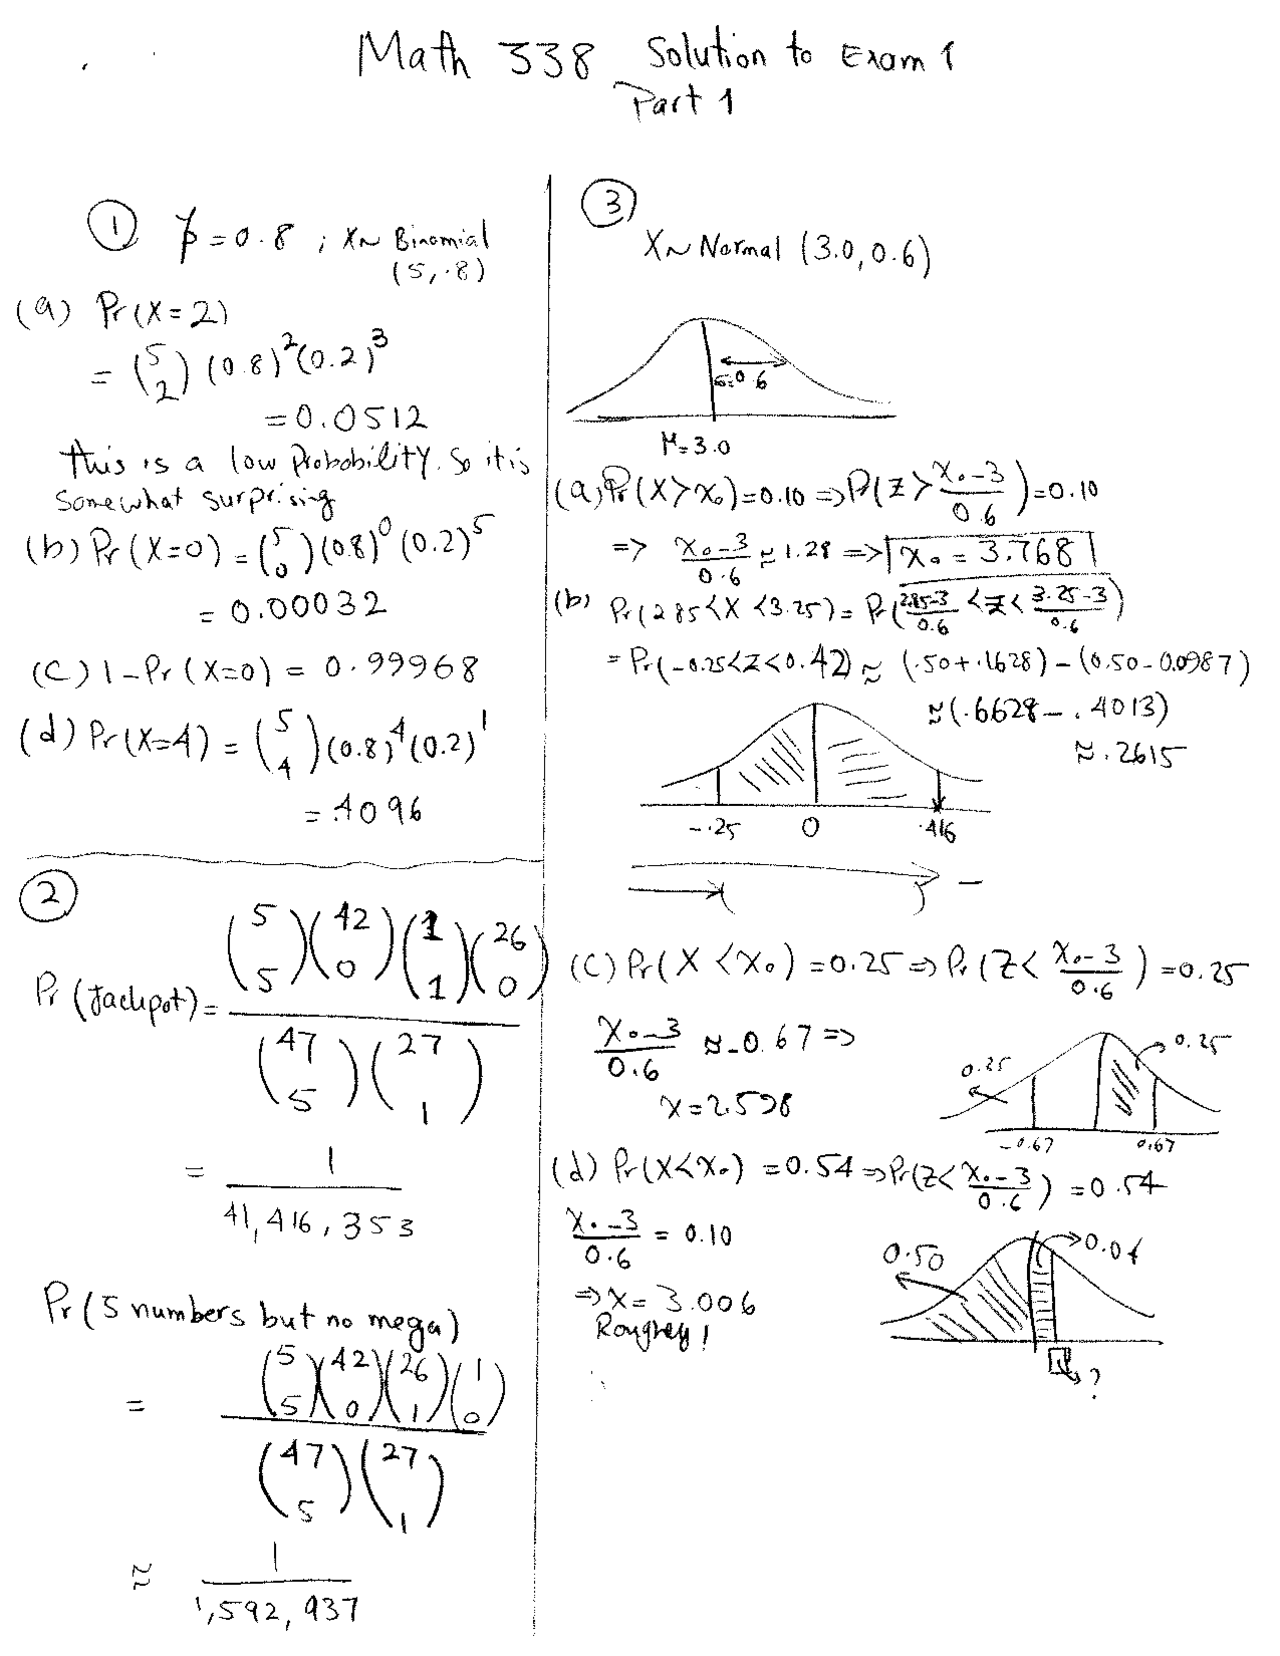 Math 338 Solution to Exam 1
Part 1
① p = 0.8 ; X~ Binomial
(5, .8)
(a) Pr(X=2)
= (5 2) (0.8)^2 (0.2)^3
= 0.0512
this is a low probability. So it is
somewhat surprising
(b) Pr(X=0) = (5 0) (0.8)^0 (0.2)^5
= 0.00032
(c) 1-Pr(X=0) = 0.99968
(d) Pr(X=4) = (5 4) (0.8)^4 (0.2)^1
= .4096
②
Pr(Jackpot) = (5 5)(42 0)(1 1)(26 0) / (47 5)(27 1)
= 1 / 41,416,353
Pr(5 numbers but no mega)
= (5 5)(42 0)(26 1)(1 0) / (47 5)(27 1)
≈ 1 / 1,592,937
③
X~ Normal (3.0, 0.6)
σ=0.6
μ=3.0
(a) Pr(X > x₀) = 0.10 ⇒ P(Z > (x₀-3)/0.6) = 0.10
⇒ (x₀-3)/0.6 ≈ 1.28 ⇒ x₀ = 3.768
(b) Pr(2.85 < X < 3.25) = Pr((2.85-3)/0.6 < Z < (3.25-3)/0.6)
= Pr(-0.25 < Z < 0.42) ≈ (.50+.1628) - (0.50-0.0987)
≈ (.6628 - .4013)
≈ .2615
-.25 0 .416
(c) Pr(X < x₀) = 0.25 ⇒ Pr(Z < (x₀-3)/0.6) = 0.25
(x₀-3)/0.6 ≈ -0.67 ⇒
x = 2.598
0.25 0.25
-0.67 0.67
(d) Pr(X < x₀) = 0.54 ⇒ Pr(Z < (x₀-3)/0.6) = 0.54
(x₀-3)/0.6 = 0.10
⇒ x = 3.006
Roughly!
0.50 0.04
?